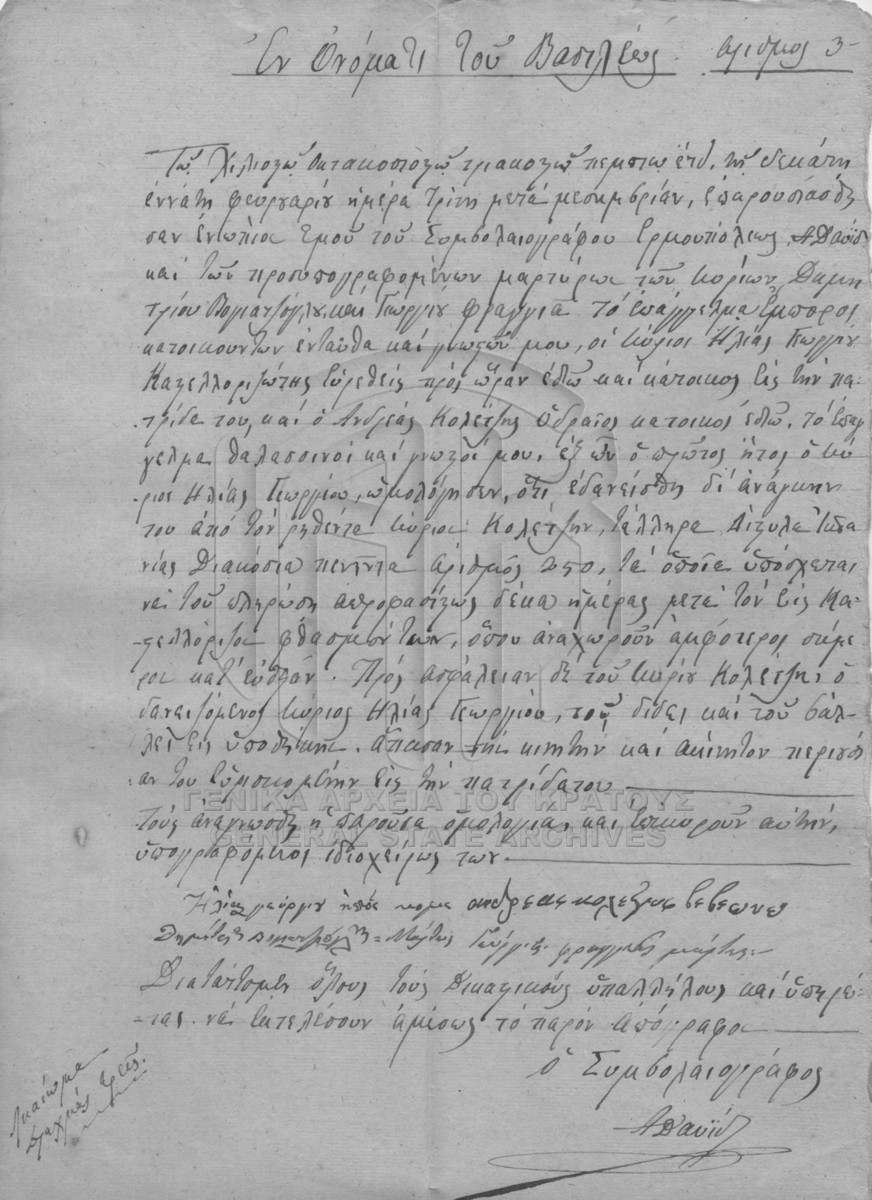 Ἐν Ὀνόματι τοῦ Βασιλέως. αριθμος 3-
Τῷ χιλιοστῷ ὀκτακοστοστῷ τριακοστῷ πεμπτῳ έτει, τῇ δεκάτῃ
ἐννάτῃ φευρουαρίου ἡμέρα τρίτη μετά μεσημβρίαν, ἐπαρουσιάσθη
σαν ἐνώπιον Ἐμοῦ τοῦ Συμβολαιογράφου Ερμουπόλεως, Α Δαυίδ
καί τῶν προσυπογραφομένων μαρτύρων τῶν κυρίων Δημη
τρίου Βογιατζόγλου, καί Γεωργίου φραγγιά τό ἐπάγγελμα Ἔμποροι
κατοικουντων ἐνταῦθα καί γνωστῶν μου, οἱ κύριοι Ηλίας Γεωργίου
Καστελλοριζώτης εὑρεθείς πρός ὥραν ἐδῶ καί κάτοικος εἰς τήν πα-
τρίδα του, καί ὁ Ανδρέας Κολέτζης Ὑδραῖος κατοικος ἐδῶ, τό ἐπάγ
γελμα θαλασσινοί καί γνωστοί μου, ἐξ ὧν ὁ πρῶτος ἤτοι ὁ κύ
ριος Ηλίας Γεωργίου, ὡμολόγησεν, ὅτι ἐδανείσθη δι' ἀνάγκην
του ἀπό τόν ρηθέντα κύριον Κολέτζην, τάλληρα δίστυλα Ἱσπα
νίας Διακόσια πενῆντα ἀριθμός 250, τά ὁποῖα ὑπόσχεται
νά τοῦ πληρώσῃ απροφασίστως δέκα ἡμέρας μετά τόν εἰς Κα-
στελλόριζον φθασμόν των, ὅπου ἀναχωροῦν ἀμφότεροι σήμε
ρον κατ' εὐθεῖαν. Πρός ἀσφάλειαν δέ τοῦ κυρίου Κολέτζη, ὁ
δανειζόμενος κύριος Ηλίας Γεωργίου, τοῦ δίδει καί τοῦ βάλ-
λει εἰς ὑποθήκην ἅπασαν τήν κινητήν καί ακίνητον περιουσί
αν του εὑρισκομένην εἰς τήν πατρίδα του
τούς ἀναγνώσθη ἡ παροῦσα ὁμολογία, καί ἐπικυροῦν αὐτήν,
ὑπογραφόμενοι ἰδιοχείρως των.
Ἠλίας γεόργιου ανδρεας κολεζης βεβεωνο
Δημήτρης Μάρτυς Γεώργις φραγγιας μάρτης
Διατάττομεν ὅλους τούς Δικαστικούς ὑπαλλήλους καί ὑπηρέ-
τας νά ἐκτελέσουν ἀμέσως τό παρόν ἀπόγραφον
ὁ Συμβολαιογράφος
Α Δαυίδ
Δικαίωμα
δραχμάς τρεῖς.
ΓΕΝΙΚΑ ΑΡΧΕΙΑ ΤΟΥ ΚΡΑΤΟΥΣ
GENERAL STATE ARCHIVES